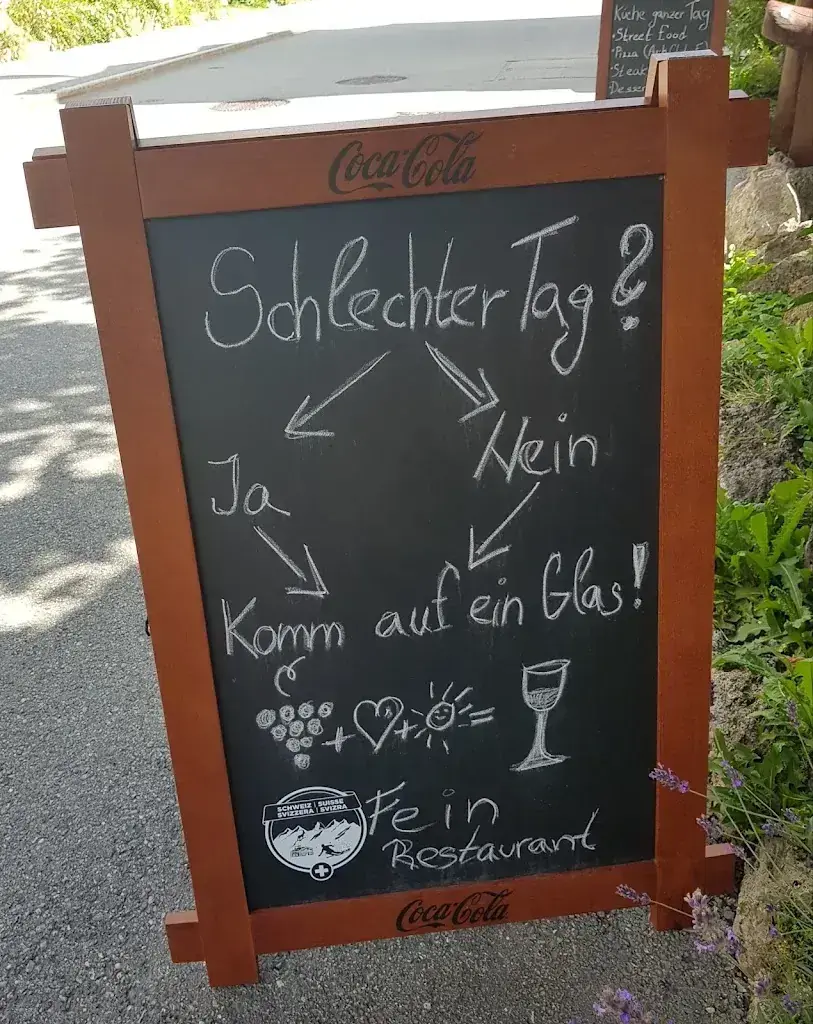 Küche ganzer Tag
• Street Food
Coca-Cola
Schlechter Tag?
Ja
Nein
Komm auf ein Glas!
+ + =
SCHWEIZ | SUISSE
SVIZZERA | SVIZRA
Fein
Restaurant
Coca-Cola